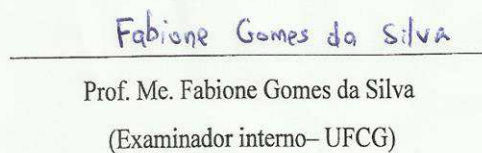 Fabione Gomes da Silva
Prof. Me. Fabione Gomes da Silva
(Examinador interno– UFCG)